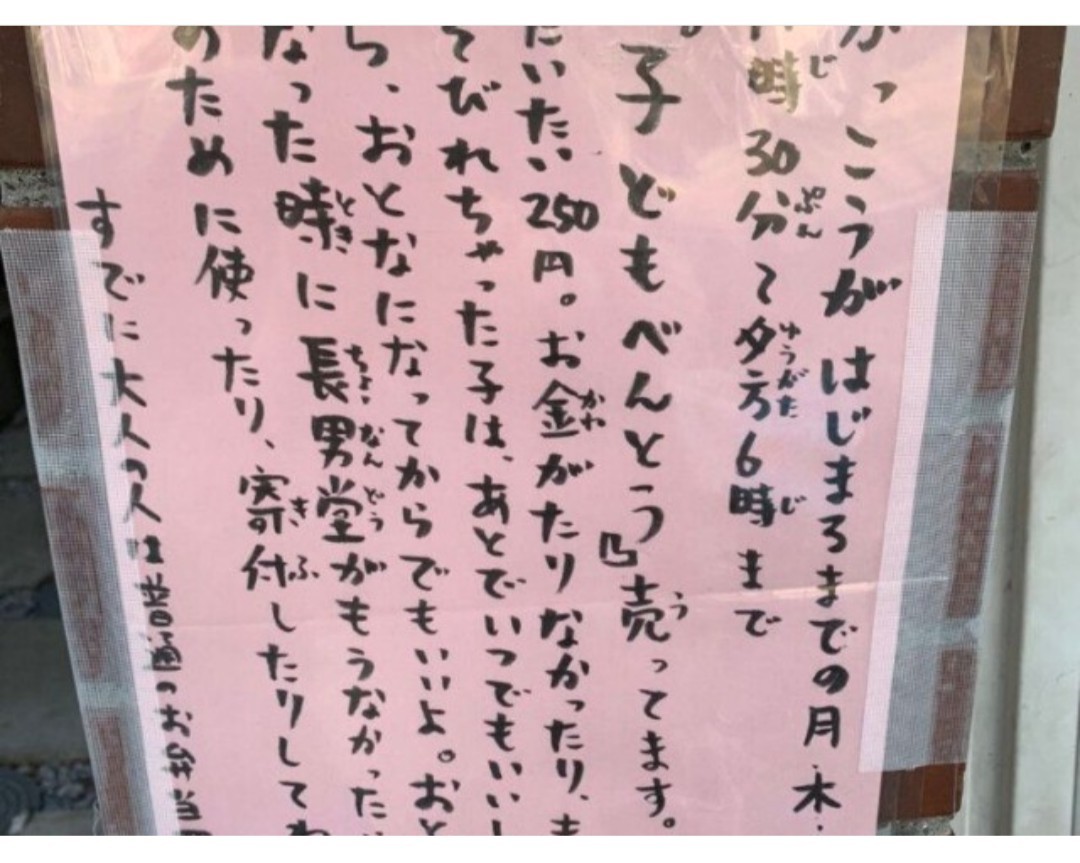 がっこうがはじまるまでの月木
時30分〜夕方6時まで
子どもべんとう」売ってます。
だいたい250円。お金がたりなかったり、
てびれちゃった子は、あとでいつでもいい
ら、おとなになってからでもいいよ。おと
なった時に長男堂がもうなかった
のために使ったり、寄付したりしてね
すでに大人の人は普通のお弁当